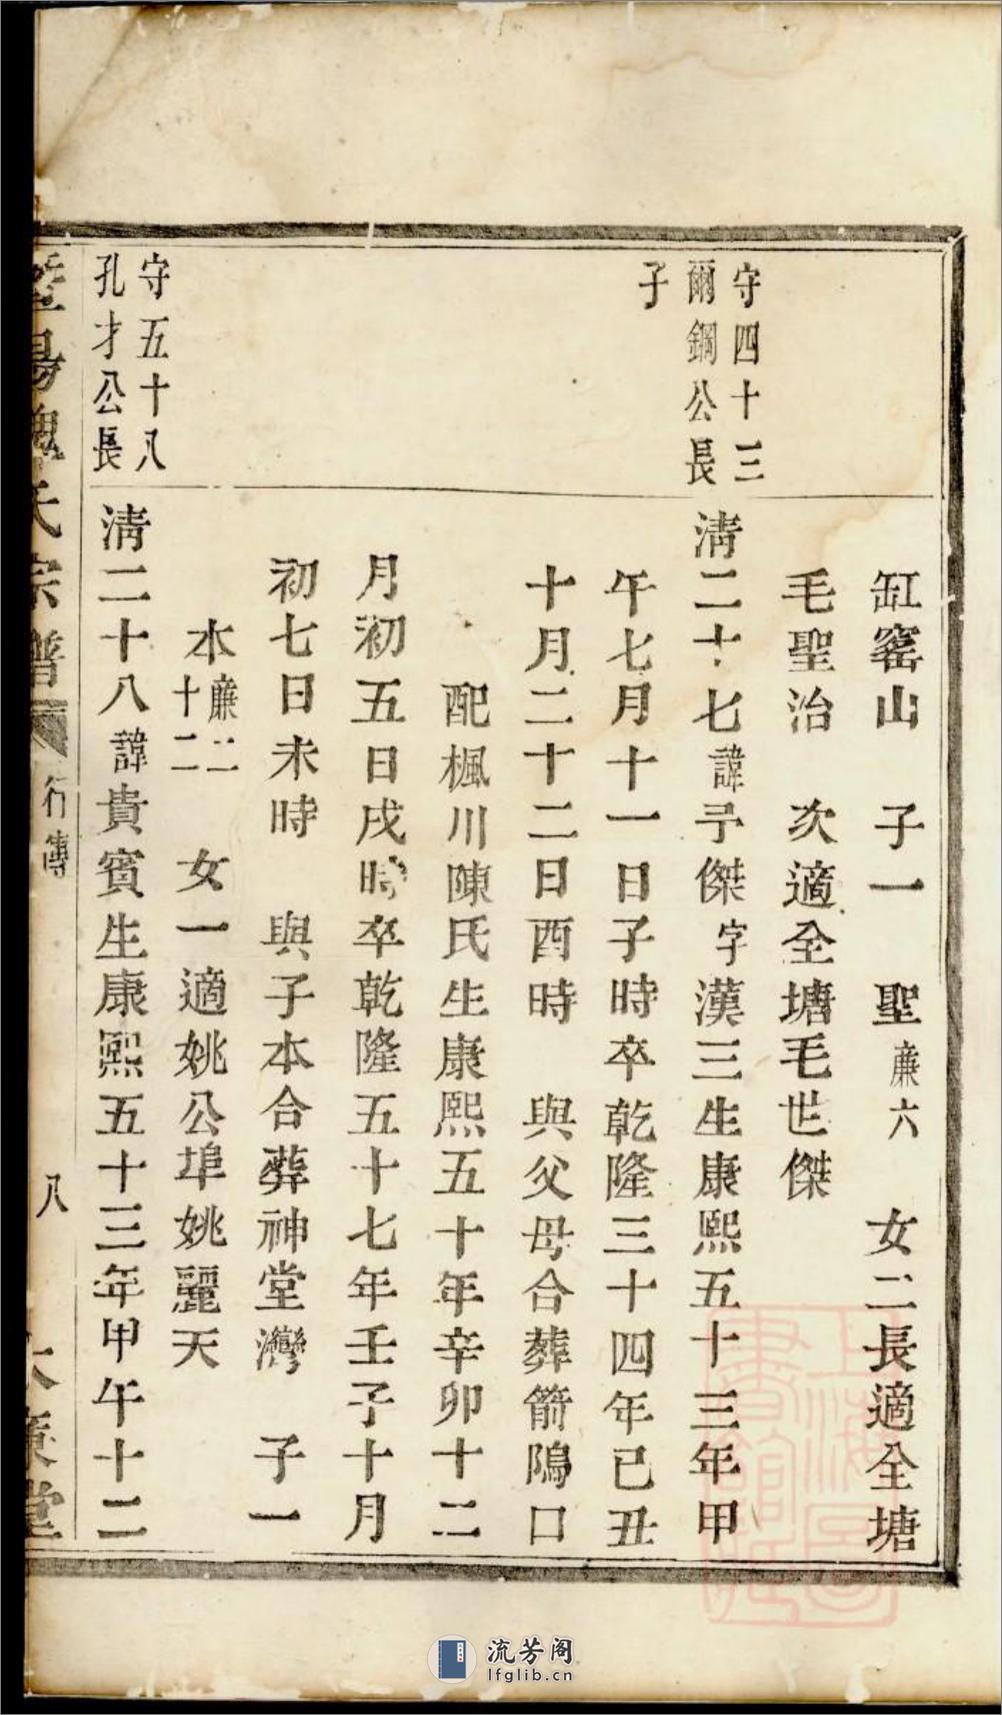 缸窰山　子一　聖廉六　女二長適全塘
毛聖治　次適全塘毛世傑
守四十三
爾鋼公長
子
淸二十七諱予傑字漢三生康熙五十三年甲
午七月十一日子時卒乾隆三十四年己丑
十月二十二日酉時　與父母合葬箭隝口
配楓川陳氏生康熙五十年辛卯十二
月初五日戌時卒乾隆五十七年壬子十月
初七日未時　與子本合葬神堂灣　子一
本廉二十二　女一適姚公埠姚麗天
守五十八
孔才公長
淸二十八諱貴賓生康熙五十三年甲午十二
暨陽魏氏宗譜
行傳
八
上海圖書館藏
流芳阁
lfglib.cn